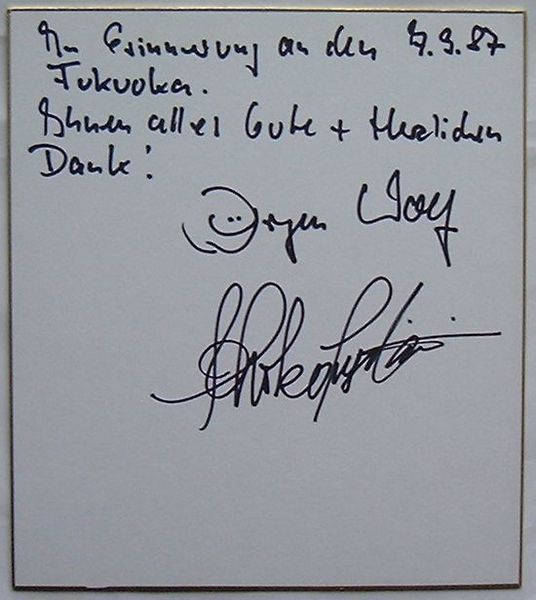 In Erinnerung an den 7.9.87
Fukuoka.
Ihnen alles Gute + Herzlichen
Dank!
Jürgen Wolf